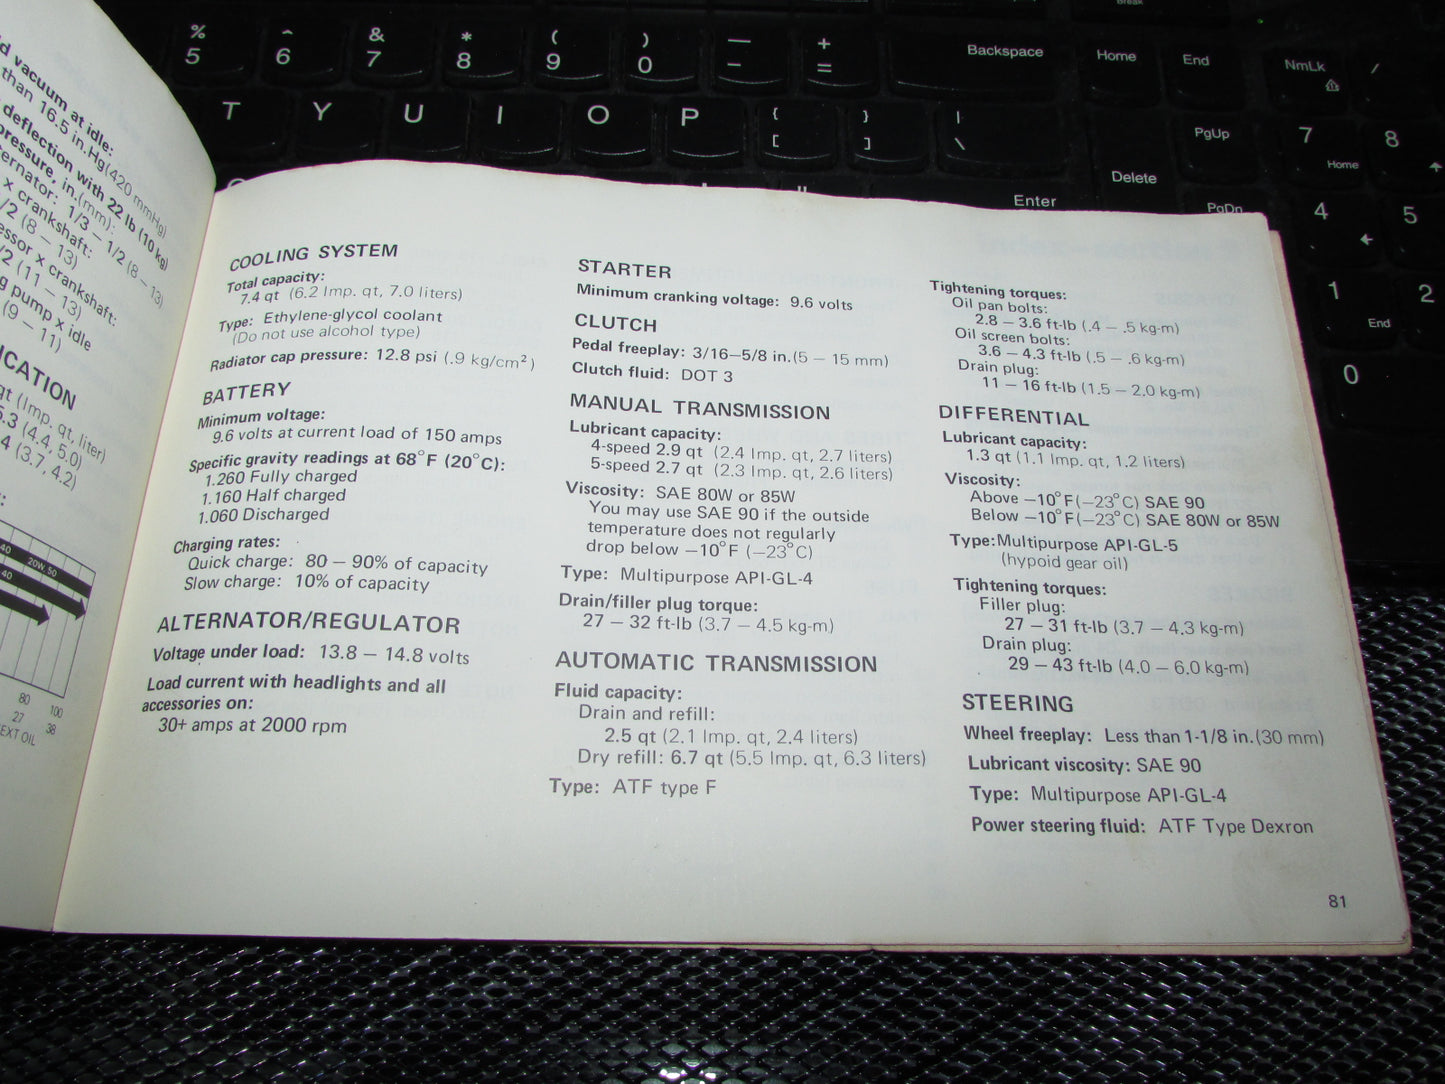 d vacuum at idle:
than 16.5 in.Hg(420 mmHg)
deflection with 22 lb (10 kg)
pressure, in.(mm):
ernator: 1/3 – 1/2 (8 – 13)
x crankshaft:
/2 (8 – 13)
ssor x crankshaft:
/2 (11 – 13)
g pump x idle
(9 – 11)
ICATION
qt (Imp. qt, liter)
5.3 (4.4, 5.0)
4 (3.7, 4.2)
40 20W, 50
40
80 100
27 38
EXT OIL
COOLING SYSTEM
Total capacity:
7.4 qt (6.2 Imp. qt, 7.0 liters)
Type: Ethylene-glycol coolant
(Do not use alcohol type)
Radiator cap pressure: 12.8 psi (.9 kg/cm²)
BATTERY
Minimum voltage:
9.6 volts at current load of 150 amps
Specific gravity readings at 68°F (20°C):
1.260 Fully charged
1.160 Half charged
1.060 Discharged
Charging rates:
Quick charge: 80 – 90% of capacity
Slow charge: 10% of capacity
ALTERNATOR/REGULATOR
Voltage under load: 13.8 – 14.8 volts
Load current with headlights and all
accessories on:
30+ amps at 2000 rpm
STARTER
Minimum cranking voltage: 9.6 volts
CLUTCH
Pedal freeplay: 3/16–5/8 in.(5 – 15 mm)
Clutch fluid: DOT 3
MANUAL TRANSMISSION
Lubricant capacity:
4-speed 2.9 qt (2.4 Imp. qt, 2.7 liters)
5-speed 2.7 qt (2.3 Imp. qt, 2.6 liters)
Viscosity: SAE 80W or 85W
You may use SAE 90 if the outside
temperature does not regularly
drop below –10°F (–23°C)
Type: Multipurpose API-GL-4
Drain/filler plug torque:
27 – 32 ft-lb (3.7 – 4.5 kg-m)
AUTOMATIC TRANSMISSION
Fluid capacity:
Drain and refill:
2.5 qt (2.1 Imp. qt, 2.4 liters)
Dry refill: 6.7 qt (5.5 Imp. qt, 6.3 liters)
Type: ATF type F
Tightening torques:
Oil pan bolts:
2.8 – 3.6 ft-lb (.4 – .5 kg-m)
Oil screen bolts:
3.6 – 4.3 ft-lb (.5 – .6 kg-m)
Drain plug:
11 – 16 ft-lb (1.5 – 2.0 kg-m)
DIFFERENTIAL
Lubricant capacity:
1.3 qt (1.1 Imp. qt, 1.2 liters)
Viscosity:
Above –10°F(–23°C) SAE 90
Below –10°F(–23°C) SAE 80W or 85W
Type:Multipurpose API-GL-5
(hypoid gear oil)
Tightening torques:
Filler plug:
27 – 31 ft-lb (3.7 – 4.3 kg-m)
Drain plug:
29 – 43 ft-lb (4.0 – 6.0 kg-m)
STEERING
Wheel freeplay: Less than 1-1/8 in.(30 mm)
Lubricant viscosity: SAE 90
Type: Multipurpose API-GL-4
Power steering fluid: ATF Type Dexron
81
Break
% ^ & * ( ) — +
5 6 7 8 9 0 – = Backspace Home End NmLk /
T Y U I O P { [ } ] | \ PgUp 7 Home 8
Delete
Enter PgDn 4 5
1 End 2
0